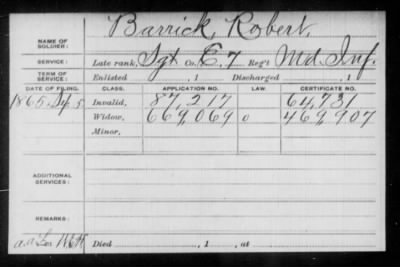 NAME OF SOLDIER: Barrick, Robert.
SERVICE: Late rank, Sgt Co. E. 7 Reg't Md. Inf.
TERM OF SERVICE: Enlisted , 1 Discharged , 1
DATE OF FILING. CLASS. APPLICATION NO. LAW. CERTIFICATE NO.
1865. 5. Invalid, 87,217 64,731
Widow, 669,069 0 469,907
Minor,
ADDITIONAL SERVICES:
REMARKS:
Died , 1 , at